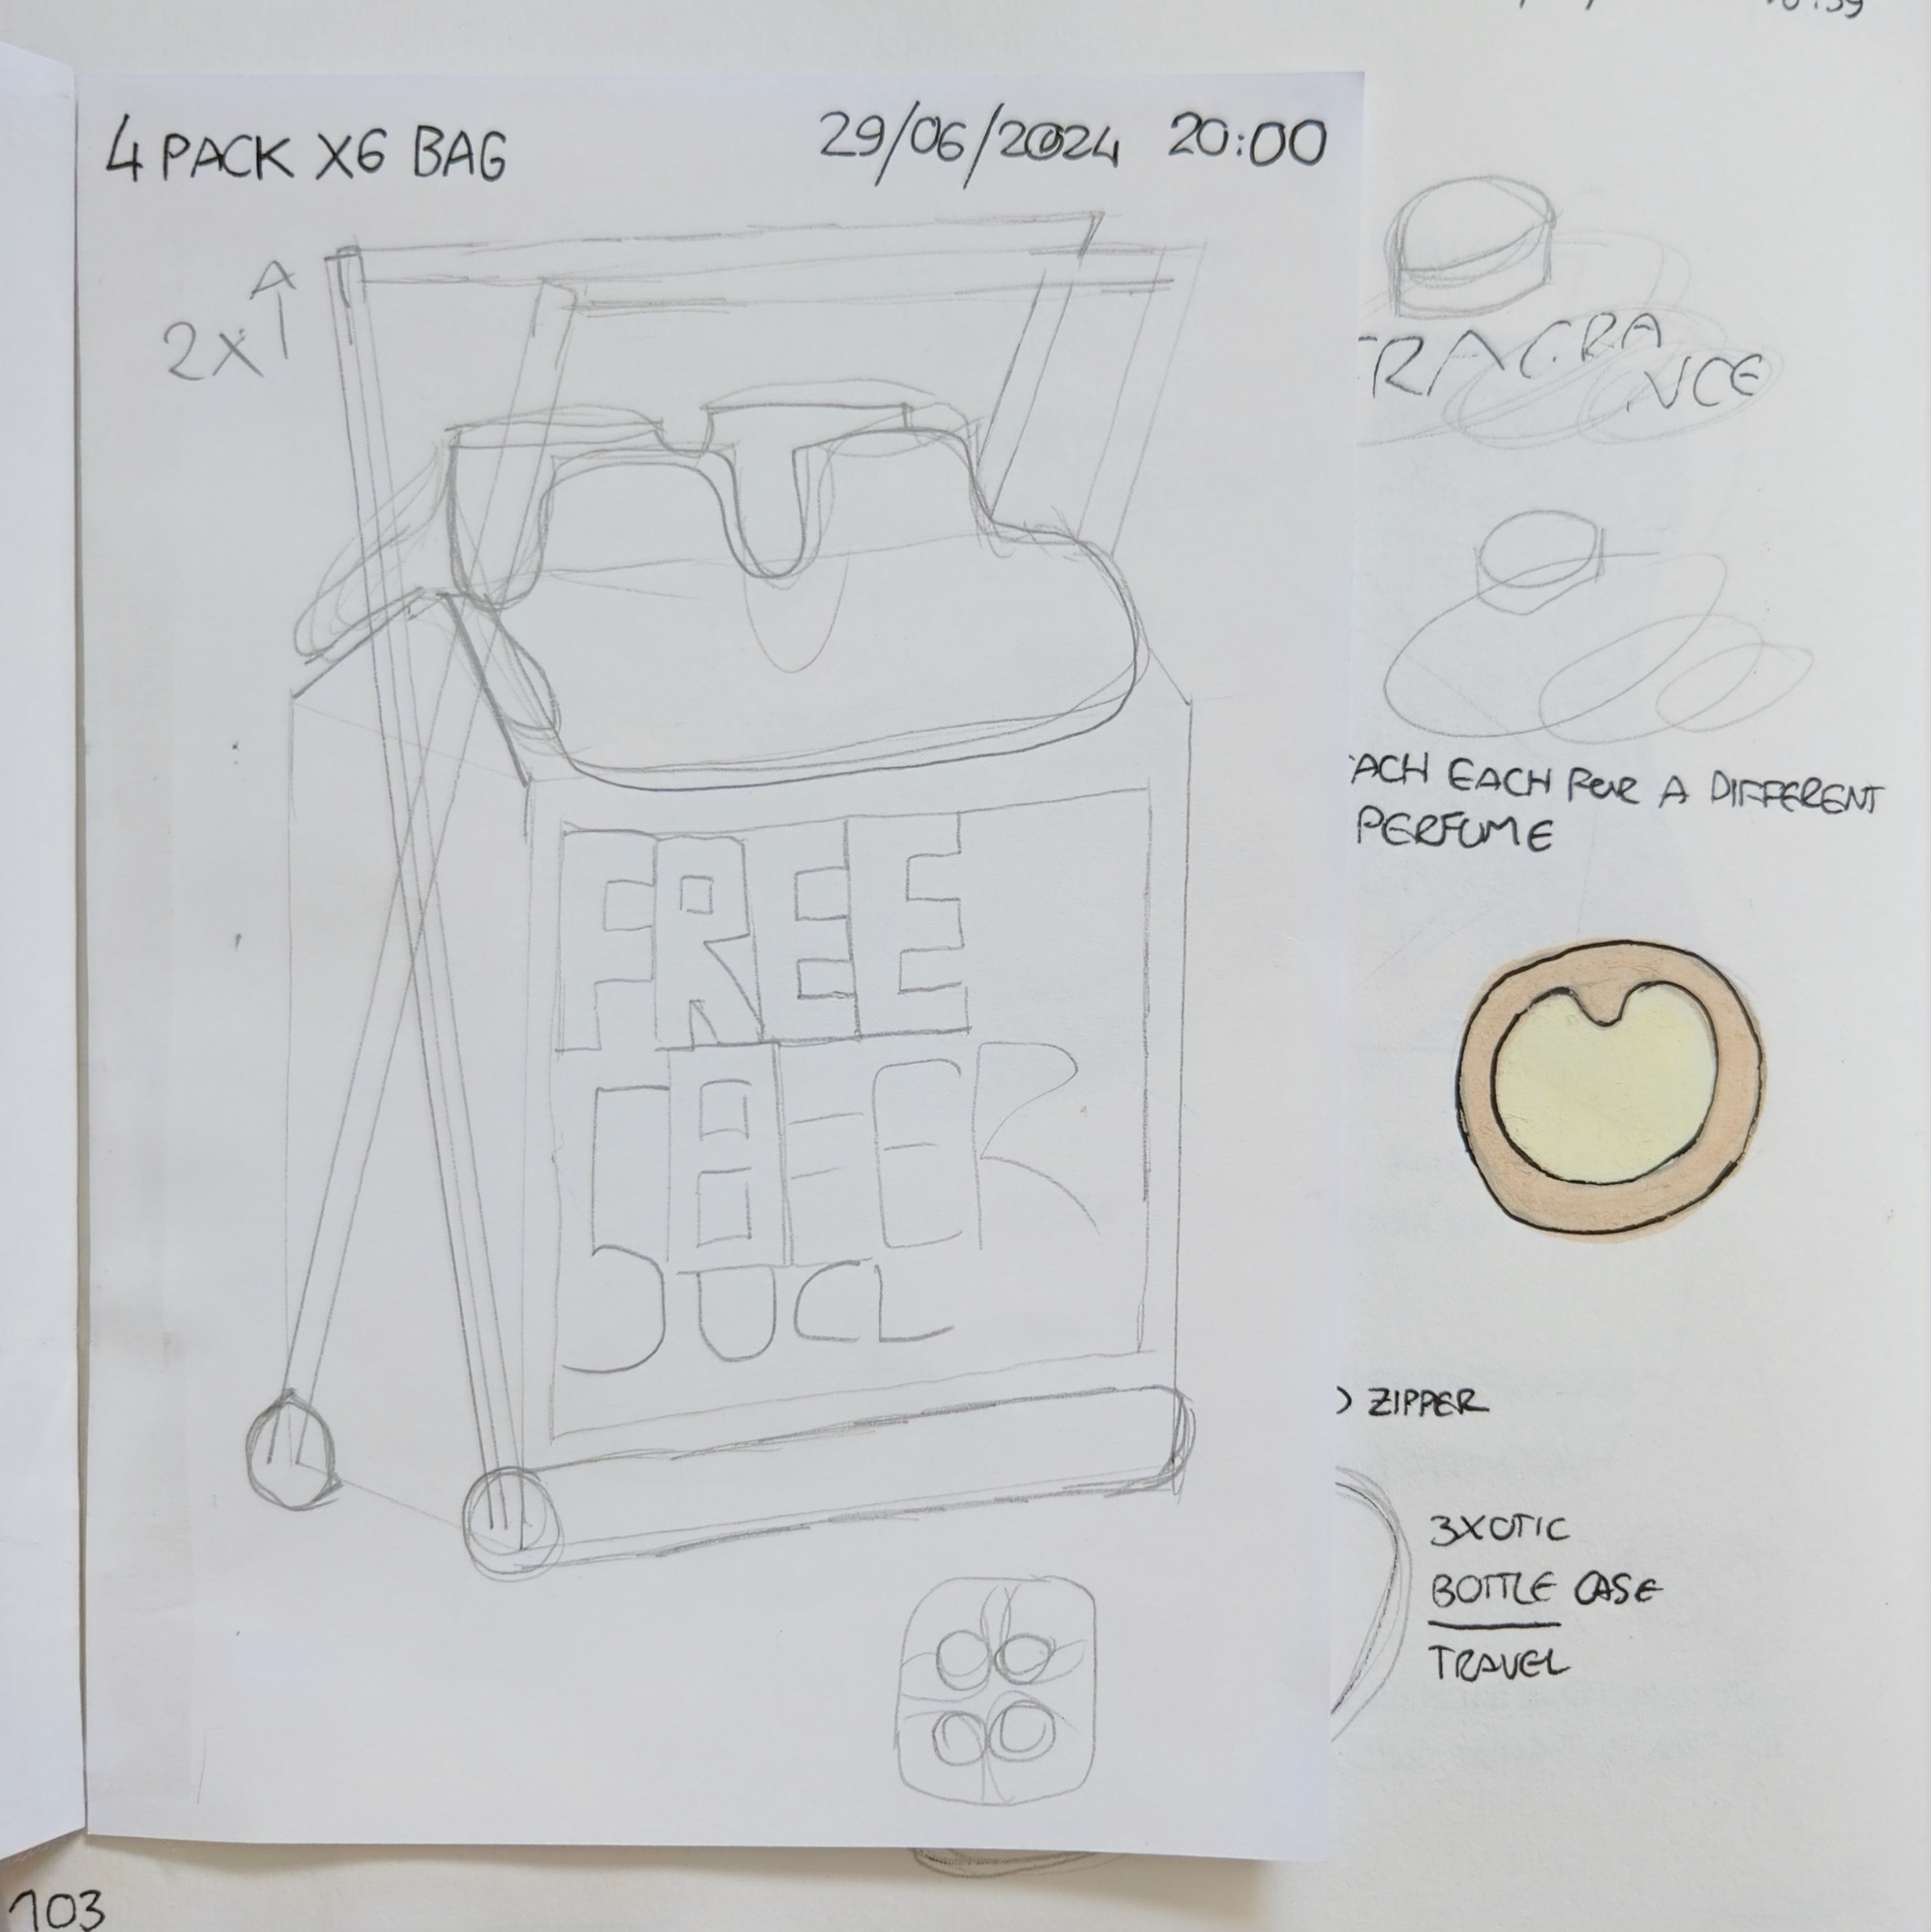 4 PACK X6 BAG
29/06/2024 20:00
2X
FREE
DUCL
RAGRA
NCE
ACH EACH FOR A DIFFERENT
PERFUME
ZIPPER
3XOTIC
BOTTLE CASE
TRAVEL
103